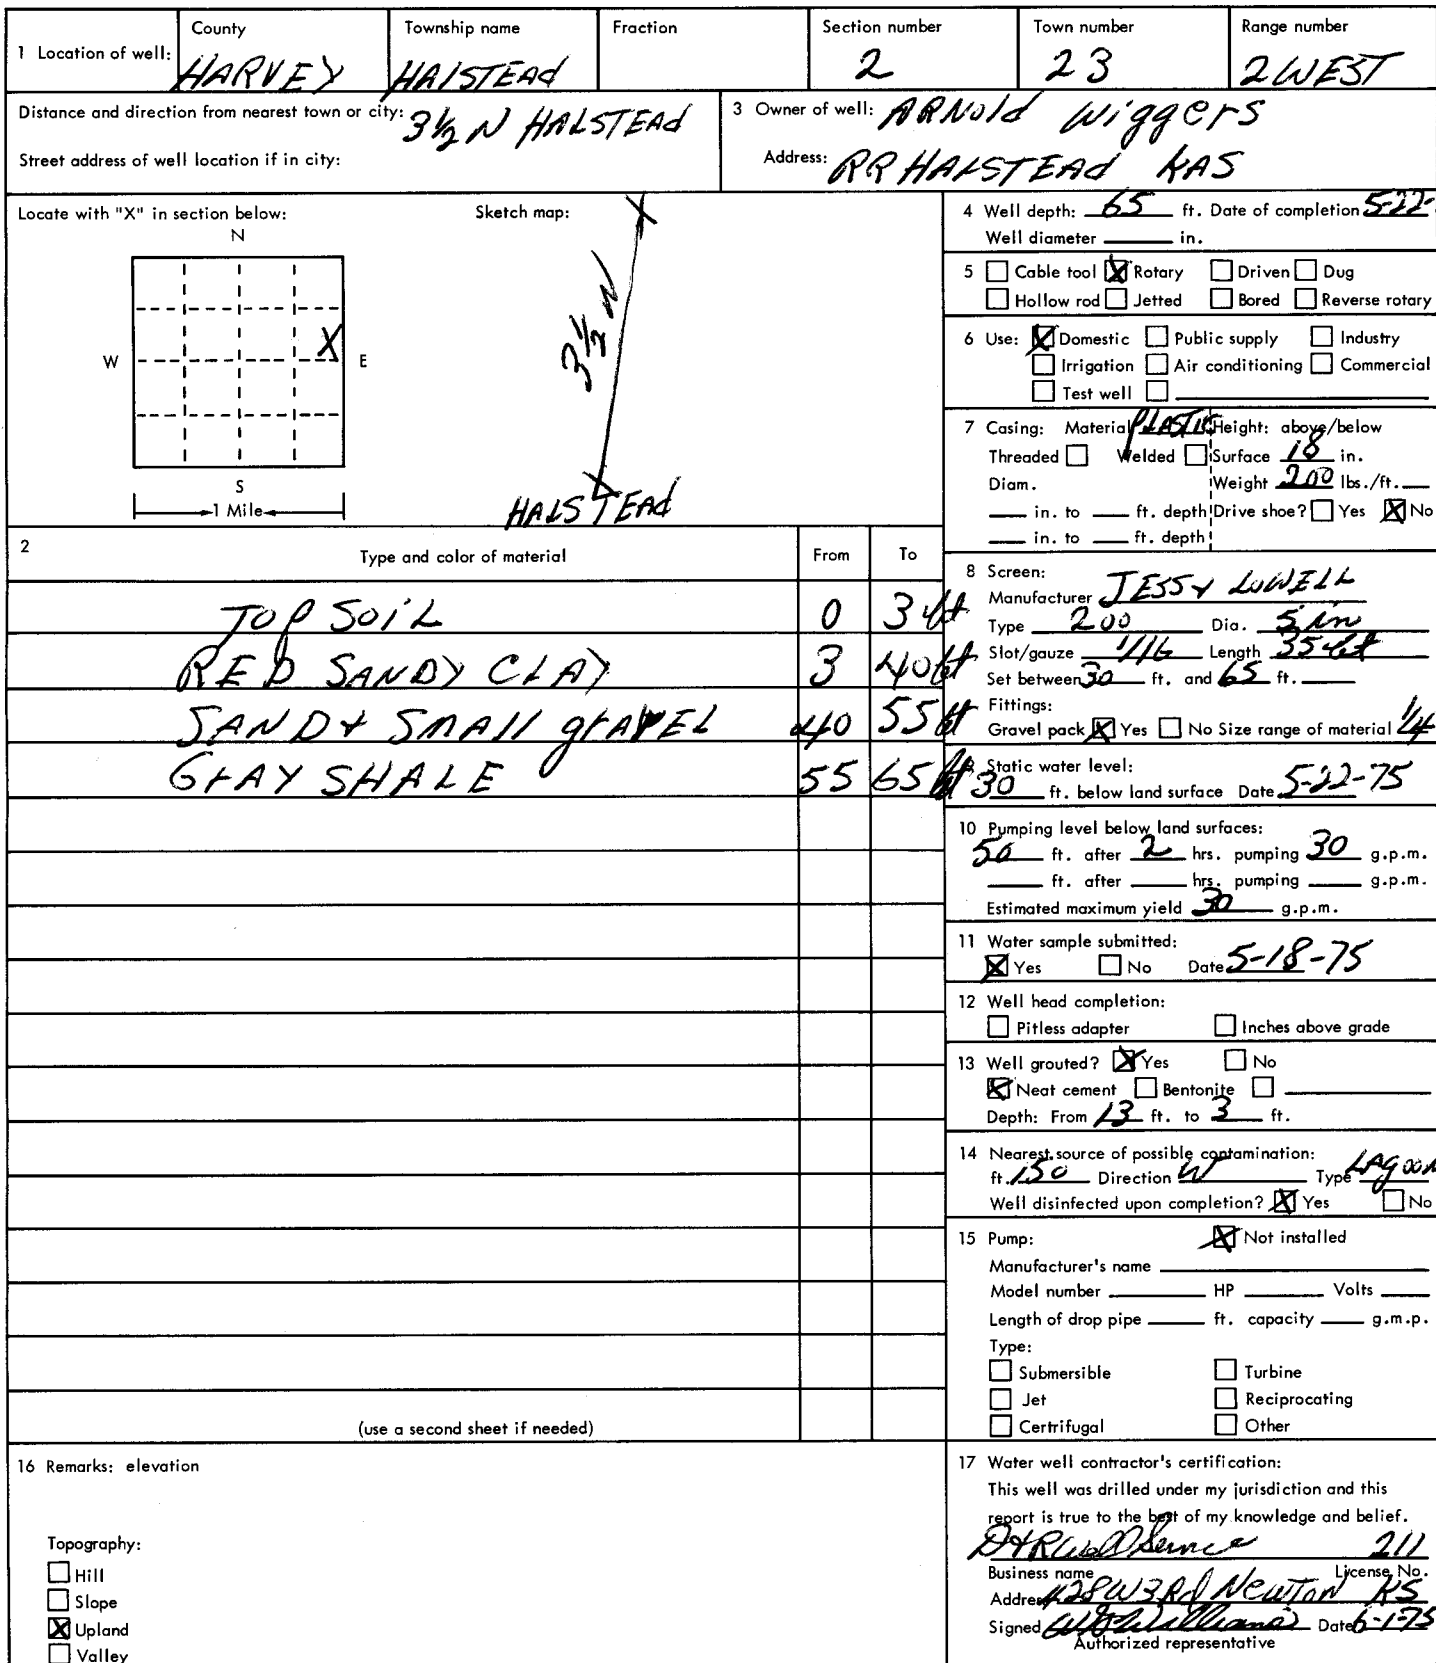 1 Location of well: County Township name Fraction Section number Town number Range number
HARVEY HAlSTEAd 2 23 2 WEST
Distance and direction from nearest town or city: 3½ N HALSTEAd
Street address of well location if in city:
3 Owner of well: ARNold WiggerS
Address: RR HALSTEAd KAS
Locate with "X" in section below:
N
W X E
S
1 Mile
Sketch map:
X
3½ N
X
HALSTEAd
2 Type and color of material From To
TOP SOIL 0 3 ft
RED SANDY CLAY 3 40 ft
SAND & SMALL grAVEL 40 55 ft
GrAY SHALE 55 65 ft
(use a second sheet if needed)
4 Well depth: 65 ft. Date of completion 5-22-
Well diameter ____ in.
5 Cable tool X Rotary Driven Dug
Hollow rod Jetted Bored Reverse rotary
6 Use: X Domestic Public supply Industry
Irrigation Air conditioning Commercial
Test well
7 Casing: Material PLASTIC Height: above/below
Threaded Welded Surface 18 in.
Diam. Weight 200 lbs./ft.
in. to ft. depth Drive shoe? Yes X No
in. to ft. depth
8 Screen:
Manufacturer JESS & LOWELL
Type 200 Dia. 5 in
Slot/gauze 1/16 Length 35 ft
Set between 30 ft. and 65 ft.
Fittings:
Gravel pack X Yes No Size range of material 1/4
Static water level:
30 ft. below land surface Date 5-22-75
10 Pumping level below land surfaces:
50 ft. after 2 hrs. pumping 30 g.p.m.
ft. after hrs. pumping g.p.m.
Estimated maximum yield 30 g.p.m.
11 Water sample submitted:
X Yes No Date 5-18-75
12 Well head completion:
Pitless adapter Inches above grade
13 Well grouted? X Yes No
X Neat cement Bentonite
Depth: From 13 ft. to 3 ft.
14 Nearest source of possible contamination:
ft. 150 Direction W Type LAgooN
Well disinfected upon completion? X Yes No
15 Pump: X Not installed
Manufacturer's name
Model number HP Volts
Length of drop pipe ft. capacity g.m.p.
Type:
Submersible Turbine
Jet Reciprocating
Certrifugal Other
16 Remarks: elevation
Topography:
Hill
Slope
X Upland
Valley
17 Water well contractor's certification:
This well was drilled under my jurisdiction and this
report is true to the best of my knowledge and belief.
D&R Well Service 211
Business name License No.
Address 428 W 3Rd NEWTON KS
Signed Williams Date 6-1-75
Authorized representative